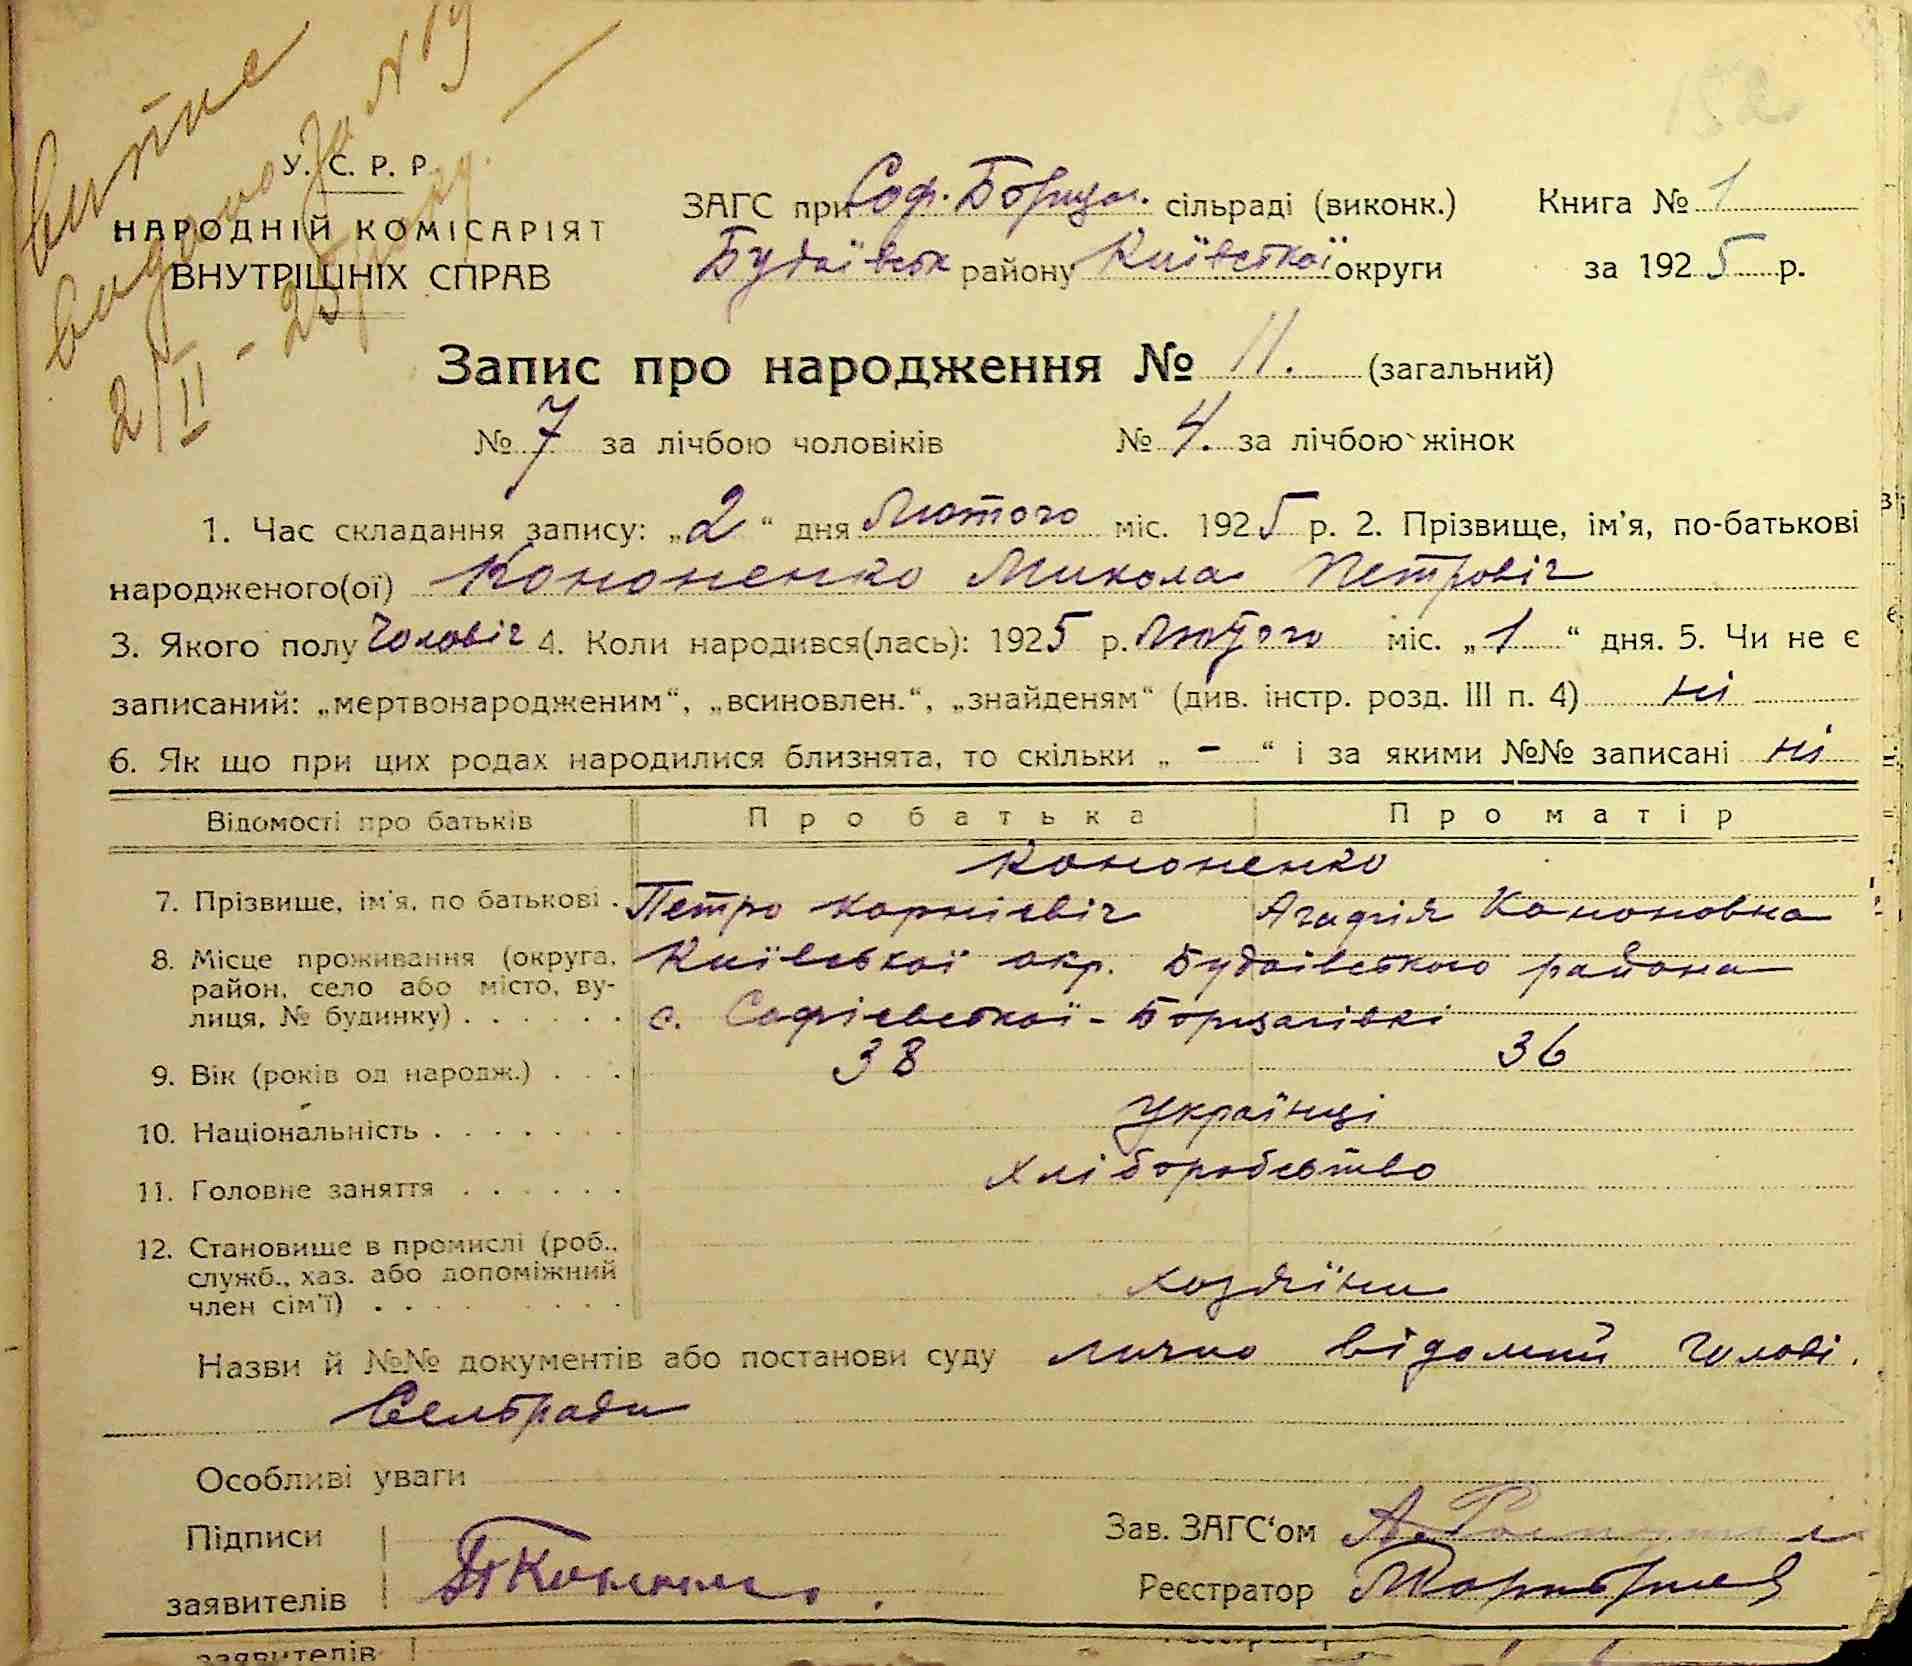 витяг
видано за № 19
2/II - 25 року.
У. С. Р. Р.
НАРОДНІЙ КОМІСАРІЯТ
ВНУТРІШНІХ СПРАВ
ЗАГС при Соф. Борщаг. сільраді (виконк.)
Будаївськ району Київської округи
Книга № 1
за 1925 р.
Запис про народження № 11. (загальний)
№ 7 за лічбою чоловіків № 4. за лічбою жінок
1. Час складання запису: „2“ дня Лютого міс. 1925 р. 2. Прізвище, ім'я, по-батькові
народженого(ої) Кононенко Микола Петровіч
3. Якого полу Чоловіч 4. Коли народився(лась): 1925 р. Лютого міс. „1“ дня. 5. Чи не є
записаний: „мертвонародженим“, „всиновлен.“, „знайденям“ (див. інстр. розд. III п. 4) ні
6. Як що при цих родах народилися близнята, то скільки „ - “ і за якими №№ записані ні
Відомості про батьків Про батька Про матір
Кононенко
7. Прізвище, ім'я, по батькові . Петро Корнієвіч Агафія Кононовна
8. Місце проживання (округа, район, село або місто, вулиця, № будинку) . . . . . . Київської окр. Будаівського района
с. Софієвської - Борщагівкі
9. Вік (років од народж.) . . . 38 36
10. Національність . . . . . . . українці
11. Головне заняття . . . . . . хліборобство
12. Становище в промислі (роб., служб., хаз. або допоміжний член сім'ї) . . . . . . . . хозяїни
Назви й №№ документів або постанови суду лично відомий голові.
Сельради
Особливі уваги
Підписи
заявителів
Зав. ЗАГС‘ом
Реєстратор
заявителів